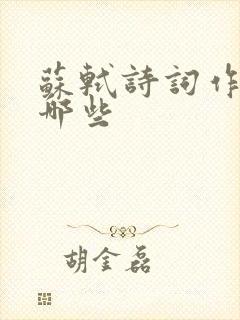 蘇軾詩詞作
哪些
胡金磊